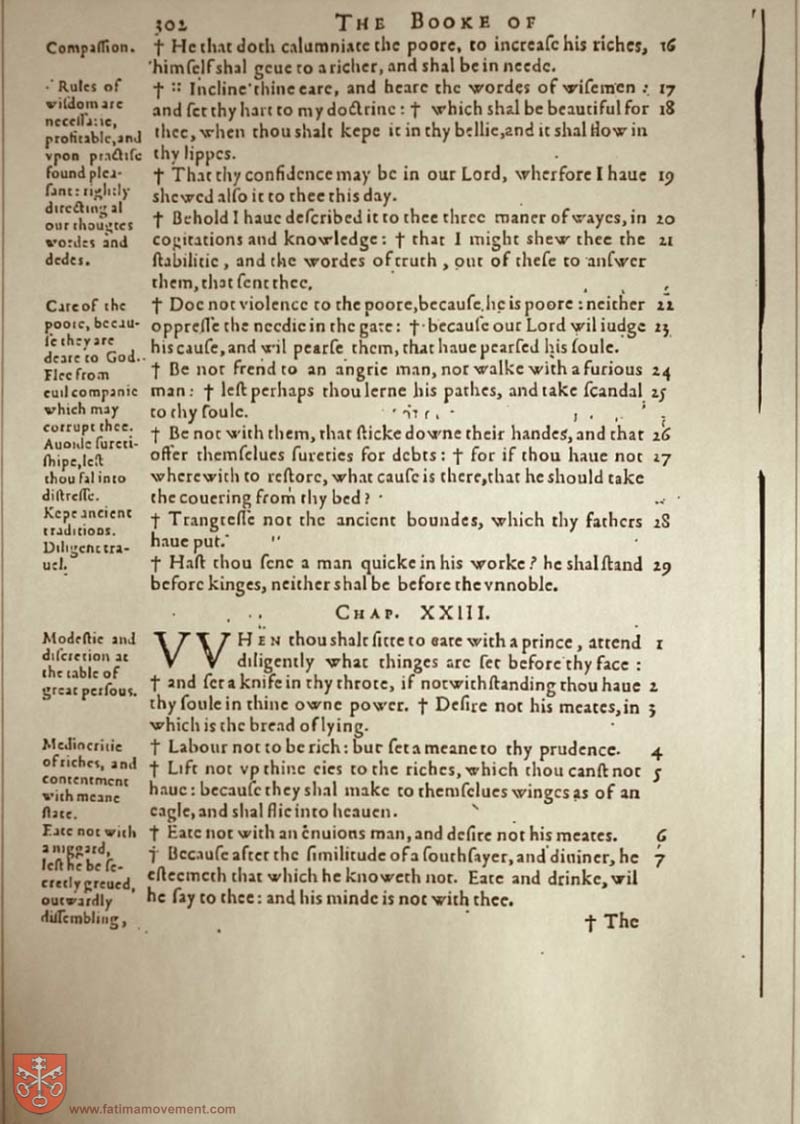 302 THE BOOKE OF
Compaſſion.
† He that doth calumniate the poore, to increaſe his riches, 16
himſelf shal geue to a richer, and shal be in neede.
Rules of
wiſdom are
neceſſarie,
profitable, and
vpon practiſe
found plea-
ſant: rightly
directing al
our thougtes
wordes and
dedes.
† :: Incline thine eare, and heare the wordes of wiſemen: 17
and ſet thy hart to my doctrine: † which shal be beautiful for 18
thee, when thou shalt kepe it in thy bellie, and it shal flow in
thy lippes.
† That thy confidence may be in our Lord, wherfore I haue 19
shewed alſo it to thee this day.
† Behold I haue deſcribed it to thee three maner of wayes, in 20
cogitations and knowledge: † that I might shew thee the 21
ſtabilitie, and the wordes of truth, out of theſe to anſwer
them, that ſent thee.
Care of the
poore, becau-
ſe they are
deare to God.
Flee from
euil companie
which may
corrupt thee.
Auoide ſureti-
ſhipe, leſt
thou fal into
diſtreſſe.
Kepe ancient
traditions.
Diligent tra-
uel.
† Doe not violence to the poore, becauſe he is poore: neither 22
oppreſſe the needie in the gate: † becauſe our Lord wil iudge 23
his cauſe, and wil pearſe them, that haue pearſed his ſoule.
† Be not frend to an angrie man, nor walke with a furious 24
man: † leſt perhaps thou lerne his pathes, and take ſcandal 25
to thy ſoule.
† Be not with them, that ſticke downe their handes, and that 26
offer themſelues ſureties for debts: † for if thou haue not 27
wherewith to reſtore, what cauſe is there, that he should take
the couering from thy bed?
† Tranſgreſſe not the ancient boundes, which thy fathers 28
haue put.
† Haſt thou ſene a man quicke in his worke? he shal ſtand 29
before kinges, neither shal be before the vnnoble.
CHAP. XXIII.
Modeſtie and
diſcretion at
the table of
great perſous.
VVHEN thou shalt ſitte to eate with a prince, attend 1
diligently what thinges are ſet before thy face:
† and ſet a knife in thy throte, if notwithſtanding thou haue 2
thy ſoule in thine owne power. † Deſire not his meates, in 3
which is the bread of lying.
Mediocritie
of riches, and
contentment
with meane
ſtate.
† Labour not to be rich: but ſet a meane to thy prudence. 4
† Lift not vp thine eies to the riches, which thou canſt not 5
haue: becauſe they shal make to themſelues winges as of an
eagle, and shal flie into heauen.
Eate not with
a niggard,
leſt he be ſe-
cretly greued,
outwardly
diſſembling,
† Eate not with an enuious man, and deſire not his meates. 6
† Becauſe after the ſimilitude of a ſouthſayer, and diuiner, he 7
eſteemeth that which he knoweth not. Eate and drinke, wil
he ſay to thee: and his minde is not with thee.
† The
www.fatimamovement.com